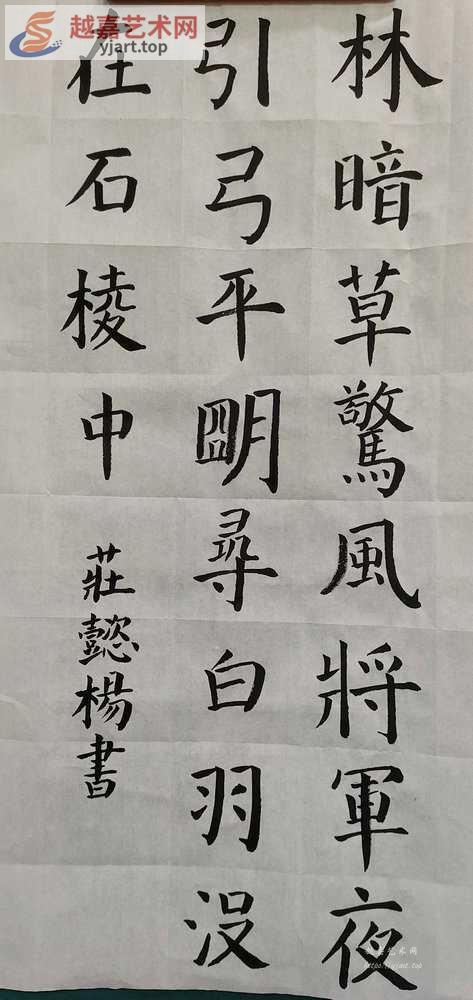 林暗草驚風將軍夜
引弓平明尋白羽沒
在石棱中
莊懿楊書
越嘉艺术网
yjart.top
越嘉艺术网
https://yjart.top